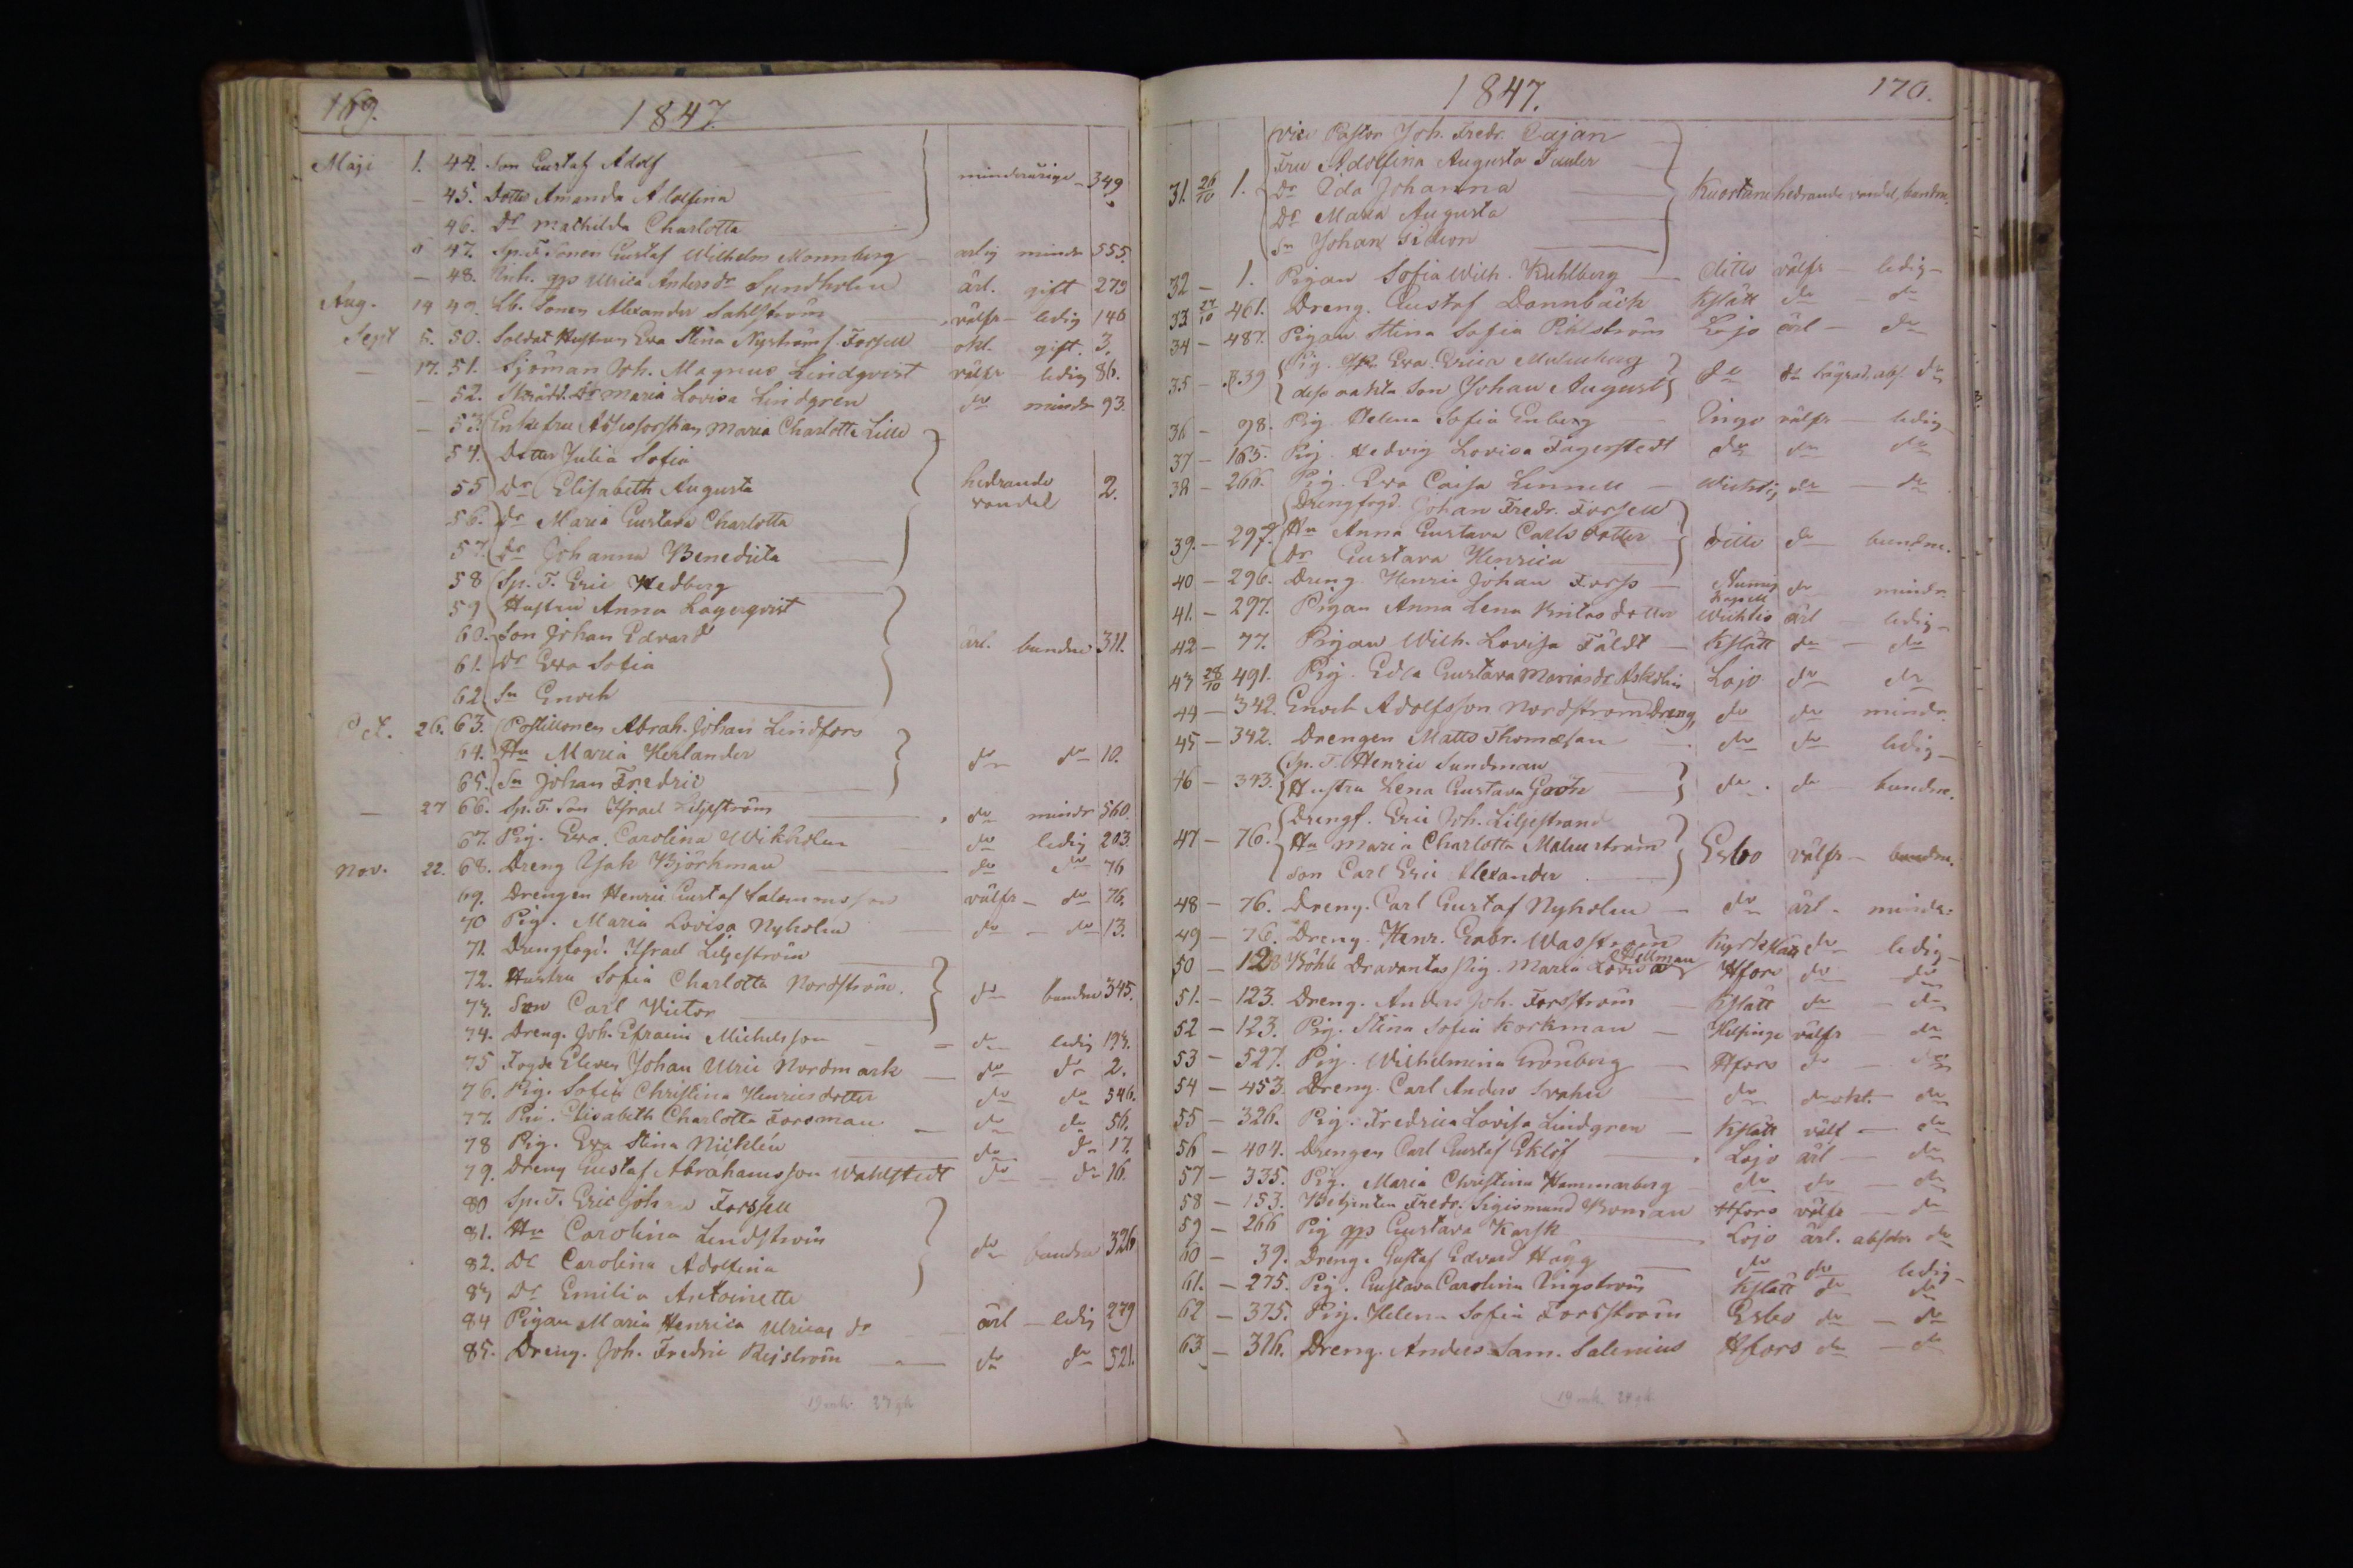 169.
1847.
Maji 1. 44. Son Gustaf Adolf
— 45. Dotter Amanda Adolfina minderårige 349
46. Dr Mathilda Charlotta
" 47. Sp. T. Sonen Gustaf Wilhelm Monnberg ärlig mindr 555.
— 48. Inh. gps Ulrica Andersdr Sundholm ärl. gift 273
Aug. 19 49. Sonen Alexander Sahlström välfr ledig 146
Sept 5. 50. Soldat Hustrun Eva Stina Nyström f. Forssell okl. gift. 3.
— 17. 51. Sjöman Joh. Magnus Lindqvist välfr ledig 86.
— 52. Dr Maria Lovisa Lindgren do mindr 93.
— 53. Enkefru Assessorskan Maria Charlotta Lille
54. Dotter Julia Sofia
55 Dr Elisabeth Augusta hedrande vandel 2.
56. dr Maria Gustava Charlotta
57. dr Johanna Benedicta
58 Sp. T. Eric Hedberg
59 Hustru Anna Lagerqvist
60. Son Johan Edvard
61. Dr Eva Sofia ärl. bundne 311.
62 Sn Enoch
Oct. 26. 63. Postillonen Abrah. Johan Lindfors
64. Hu Maria Herlander do do 10.
65. Sn Johan Fredric
— 27 66. Sp. T. Son Israel Liljeström do mindr 560.
67. Pig. Eva Carolina Wikholm do ledig 203.
Nov. 22. 68. Dreng Isak Björkman do do 76
69. Drengen Henric Gustaf Salomonsson välfr do 76.
70 Pig. Maria Lovisa Nyholm do do 13.
71. Drengfogd. Israel Liljeström
72. Hustru Sofia Charlotta Nordström. do bundne 345.
73. Son Carl Victor
74. Dreng. Joh. Efraim Michelsson do ledig 193.
75 Fogde Eleven Johan Ulric Nordmark do dr 2.
76. Pig. Sofia Christina Henricsdotter do do 546.
77. Pig. Elisabeth Charlotta Forsman do do 56.
78 Pig. Eva Stina Nicklén do do 17.
79. Dreng Gustaf Abrahamsson Wahlstedt do do 16.
80 Sp. T. Eric Johan Forssell
81. Hu Carolina Lindström do bundne 326
82. Dr Carolina Adolfina
83 Dr Emilia Antoinette
84 Pigan Maria Henrica Ulricas dr ärl ledig 279
85. Dreng. Joh. Fredric Rejström do do 521.
1847.
170.
vice Pastor Joh. Fredr. Cajan
Fru Adolfina Augusta Tauler
31. 26/10 1. Dr Ida Johanna hedrande vandel, bundne.
Dr Maria Augusta
Sn Johan Sidion
32 — 1. Pigan Sofia Wilh. Kuhlberg ditto välfr ledig
33 27/10 461. Dreng. Gustaf Dannbäck Kslätt do do
34 — 487. Pigan Stina Sofia Pihlström Lojo ärl do
35 — 39 Pig. Eva Ulrica Malmberg
dess oäkta Son Johan August do
36 — 98. Pig. Helena Sofia Enberg Ingo välfr ledig
37 — 165. Pig. Hedvig Lovisa Fagerstedt do do do
38 — 266. Pig. Eva Caisa Linnell Wichtis do do
Drengfogd. Johan Fredr. Forssell
39. — 297. Hu Anna Gustava Carlsdotter ditto do bundne.
Dr Gustava Henrica
40 — 296. Dreng Henric Johan Forss Nummis Kapell do mindr.
41. — 297. Pigan Anna Lena Knutsdotter Wichtis ärl ledig
42 — 77. Pigan Wilh. Lovisa Fäldt Kslätt do do
43 28/10 491. Pig. Edla Gustava Mariasdr Askolin Lojo do do
44 — 342. Enoch Adolfsson Nordström Dreng, do do mindr.
45 — 342. Drengen Matts Thomasson do do ledig
46 — 343. Sp. T. Henric Sundman
Hustru Lena Gustava Gröön do do bundne.
Drengf. Eric Joh. Liljestrand
47 — 76. Hu Maria Charlotta Malmström Esbo välfr bundne.
Son Carl Eric Alexander
48 — 76. Dreng. Carl Gustaf Nyholm do ärl mindr.
49 — 76. Dreng. Henr. Gabr. Wasström Kyrkslätt do ledig
50 — 123 Pig. Maria Lovisa Hellman Hfors do do
51. — 123. Dreng. Anders Joh. Forsström Kslätt do do
52 — 123. Pig. Stina Sofia Korkman Helsinge välfr do
53 — 527. Pig. Wilhelmina Grönberg Hfors do do
54 — 453. Dreng. Carl Anders Svahn do do okl. do
55 — 326. Pig. Fredrica Lovisa Lindgren Kslätt välf do
56 — 404. Drengen Carl Gustaf Eklöf Lojo ärl do
57 — 335. Pig. Maria Christina Hammarberg do do do
58 — 153. Betjenten Fredr. Sigismund Boman Hfors välfr do
59 — 266 Pig gps Gustava Karsk Lojo ärl. absolv. do
60 — 39. Dreng. Gustaf Edvard Hägg do do ledig
61. — 275. Pig. Gustava Carolina Ringström Kslätt do do
62 — 375. Pig. Helena Sofia Forsström Esbo do do
63 — 316. Dreng. Anders Sam. Salenius Hfors do do